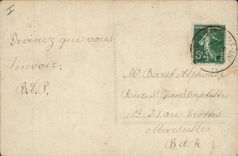 Devinez qui vous
l'envoie.
B.F.P.
Mr Baret Alphonse
Rue St Jean Baptiste
No 21 au Crottes
Marseille
B d R